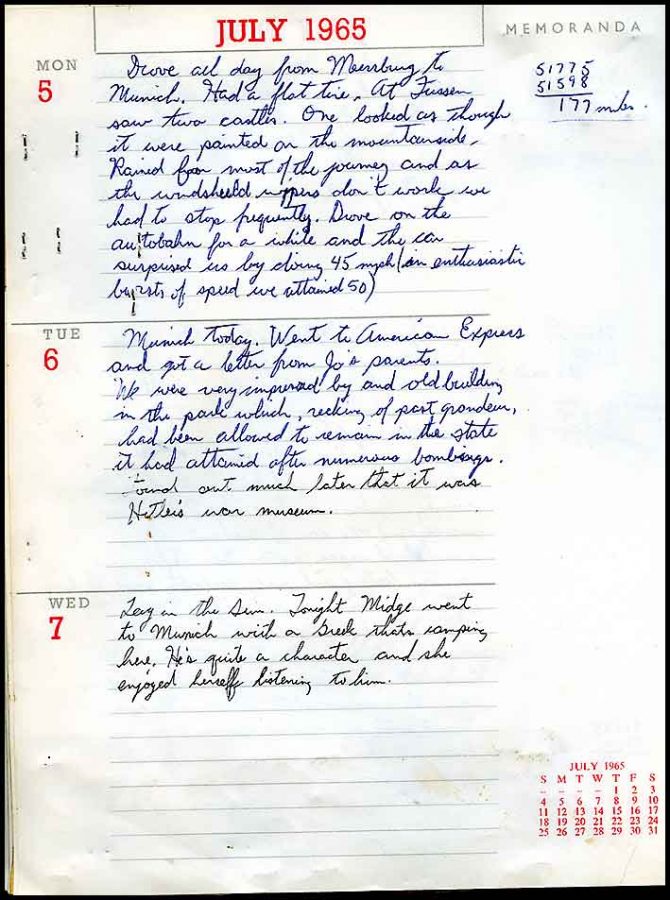 JULY 1965
MEMORANDA
MON
5
Drove all day from Meersburg to
Munich. Had a flat tire. At Fussen
saw two castles. One looked as though
it were painted on the mountainside.
Rained for most of the journey and as
the windshield wipers don't work we
had to stop frequently. Drove on the
autobahn for a while and the car
surprised us by doing 45 mph (in enthusiastic
bursts of speed we attained 50)
51775
51598
177 miles.
TUE
6
Munich today. Went to American Express
and got a letter from Jo's parents.
We were very impressed by and old building
in the park which, reeking of past grandeur,
had been allowed to remain in the state
it had attained after numerous bombings.
Found out much later that it was
Hitler's war museum.
WED
7
Lay in the sun. Tonight Midge went
to Munich with a Greek thats camping
here. He's quite a character and she
enjoyed herself listening to him.
JULY 1965
S M T W T F S
– – – – 1 2 3
4 5 6 7 8 9 10
11 12 13 14 15 16 17
18 19 20 21 22 23 24
25 26 27 28 29 30 31